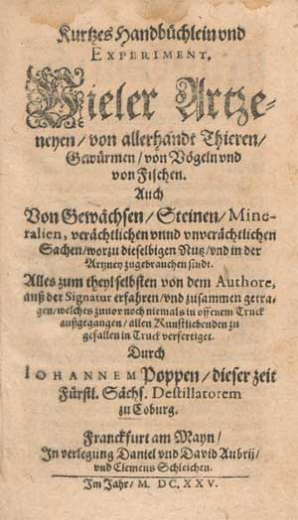 Kurtzes Handbüchlein vnd
EXPERIMENT,
Vieler Artze-
neyen / von allerhandt Thieren /
Gewürmen / von Vögeln vnd
von Fischen.
Auch
Von Gewächsen / Steinen / Mine-
ralien, verächtlichen vnnd vnverächtlichen
Sachen / worzu dieselbigen Nutz / vnd in der
Artzney zugebrauchen sindt.
Alles zum theyl selbsten von dem Authore,
auß der Signatur erfahren / vnd zusammen getra-
gen / welches zuvor noch niemals in offenem Truck
außgegangen / allen Kunstliebenden zu
gefallen in Truck verfertiget.
Durch
IOHANNEM Poppen / dieser zeit
Fürstl. Sächs. Destillatorem
zu Coburg.
Franckfurt am Mayn /
In verlegung Daniel vnd David Aubrij /
vnd Clemens Schleichen.
Im Jahr / M. DC. XXV.